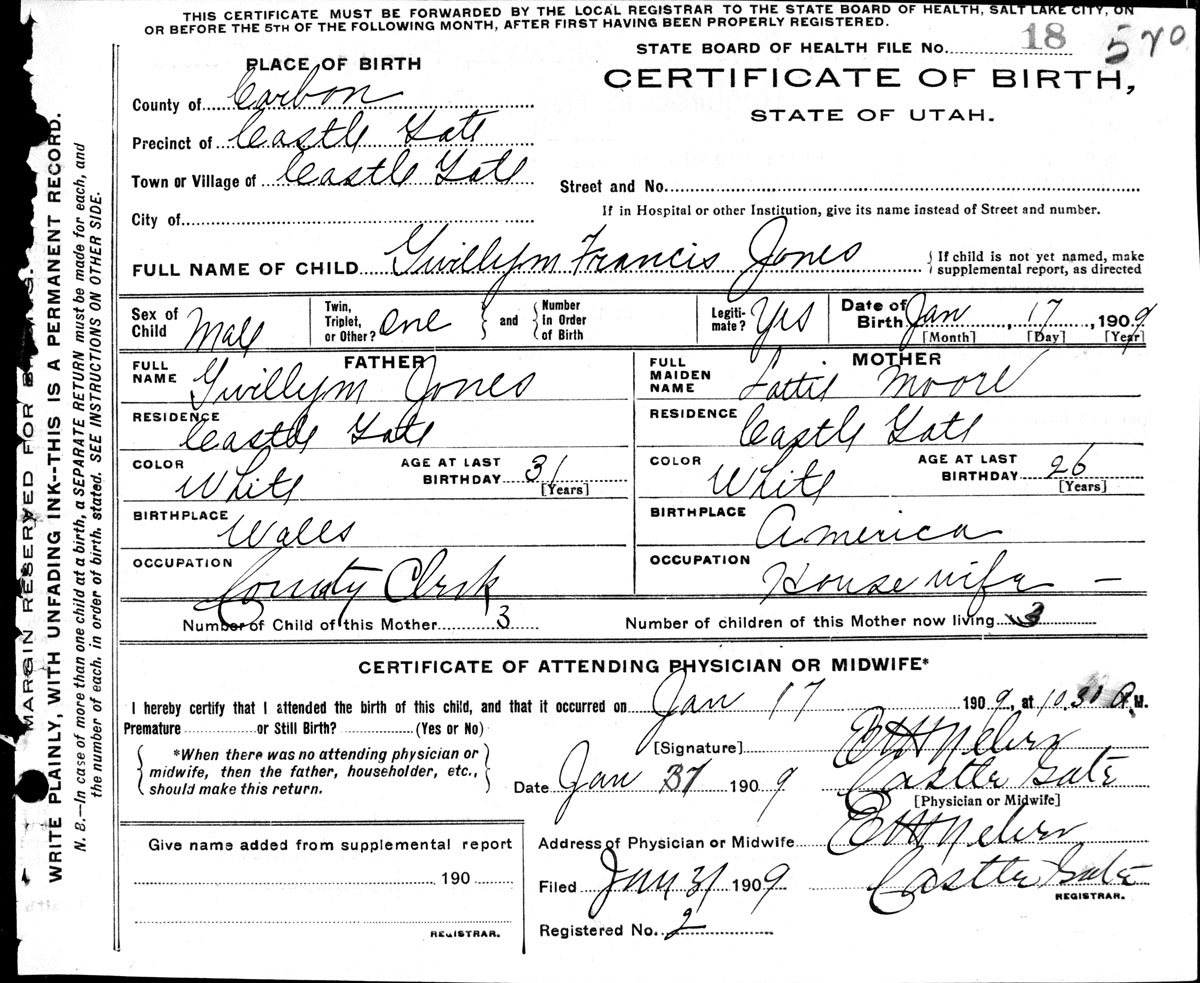 THIS CERTIFICATE MUST BE FORWARDED BY THE LOCAL REGISTRAR TO THE STATE BOARD OF HEALTH, SALT LAKE CITY, ON
OR BEFORE THE 5TH OF THE FOLLOWING MONTH, AFTER FIRST HAVING BEEN PROPERLY REGISTERED.
STATE BOARD OF HEALTH FILE No. 18 570
PLACE OF BIRTH
CERTIFICATE OF BIRTH,
STATE OF UTAH.
County of Carbon
Precinct of Castle Gate
Town or Village of Castle Gate
Street and No.
City of
If in Hospital or other Institution, give its name instead of Street and number.
FULL NAME OF CHILD Gwillym Francis Jones { If child is not yet named, make
supplemental report, as directed
Sex of Child Male
Twin, Triplet, or Other? one } and { Number In Order of Birth
Legitimate? Yes
Date of Birth Jan 17, 1909
[Month] [Day] [Year]
FATHER
MOTHER
FULL NAME Gwillym Jones
FULL MAIDEN NAME Moore
RESIDENCE Castle Gate
RESIDENCE Castle Gate
COLOR White AGE AT LAST BIRTHDAY 31 [Years]
COLOR White AGE AT LAST BIRTHDAY 26 [Years]
BIRTHPLACE Wales
BIRTHPLACE America
OCCUPATION County Clerk
OCCUPATION Housewife –
Number of Child of this Mother 3
Number of children of this Mother now living 3
CERTIFICATE OF ATTENDING PHYSICIAN OR MIDWIFE*
I hereby certify that I attended the birth of this child, and that it occurred on Jan 17 1909, at 10.30 P.M.
Premature or Still Birth? (Yes or No)
*When there was no attending physician or
midwife, then the father, householder, etc.,
should make this return.
[Signature]
Date Jan 31 1909 Castle Gate
[Physician or Midwife]
Give name added from supplemental report
190
REGISTRAR.
Address of Physician or Midwife
Filed Jan 31 1909 Castle Gate
REGISTRAR.
Registered No. 2
MARGIN RESERVED FOR
WRITE PLAINLY, WITH UNFADING INK--THIS IS A PERMANENT RECORD.
N. B.—In case of more than one child at a birth, a SEPARATE RETURN must be made for each, and
the number of each, in order of birth, stated. SEE INSTRUCTIONS ON OTHER SIDE.